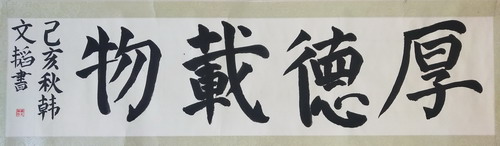 厚德載物
己亥秋韩
文韬書